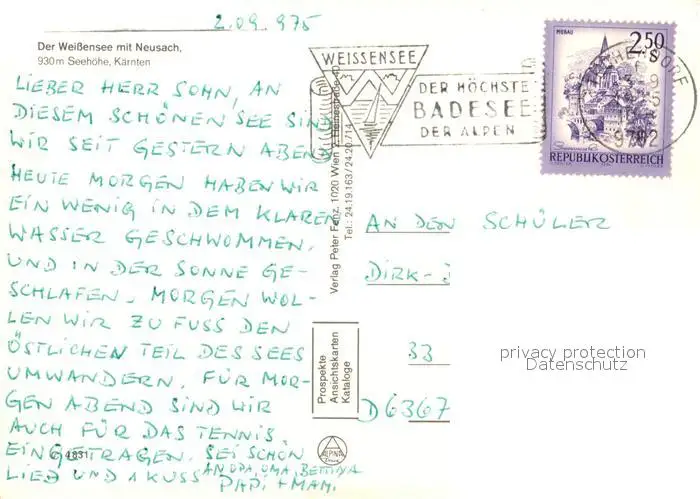 2.09.975
Der Weißensee mit Neusach,
930 m Seehöhe, Kärnten
LIEBER HERR SOHN, AN
DIESEM SCHÖNEN SEE SIND
WIR SEIT GESTERN ABEND
HEUTE MORGEN HABEN WIR
EIN WENIG IN DEM KLAREN
WASSER GESCHWOMMEN,
UND IN DER SONNE GE-
SCHLAFEN. MORGEN WOL-
LEN WIR ZU FUSS DEN
ÖSTLICHEN TEIL DES SEES
UMWANDERN. FÜR MOR-
GEN ABEND SIND WIR
AUCH FÜR DAS TENNIS
EINGETRAGEN. SEI SCHÖN
LIEB UND 1 KUSS AN OPA, OMA, BETTINA
PAPI + MAM.
4831
Verlag Peter Fanz, 1020 Wien
Tel.: 24.19.163/24.20.714
Prospekte
Ansichtskarten
Kataloge
ALPINA
WEISSENSEE
DER HÖCHSTE
BADESEE
DER ALPEN
MURAU
2.50
S
REPUBLIK ÖSTERREICH
AN DEN SCHÜLER
DIRK-
33
D 6367
privacy protection
Datenschutz